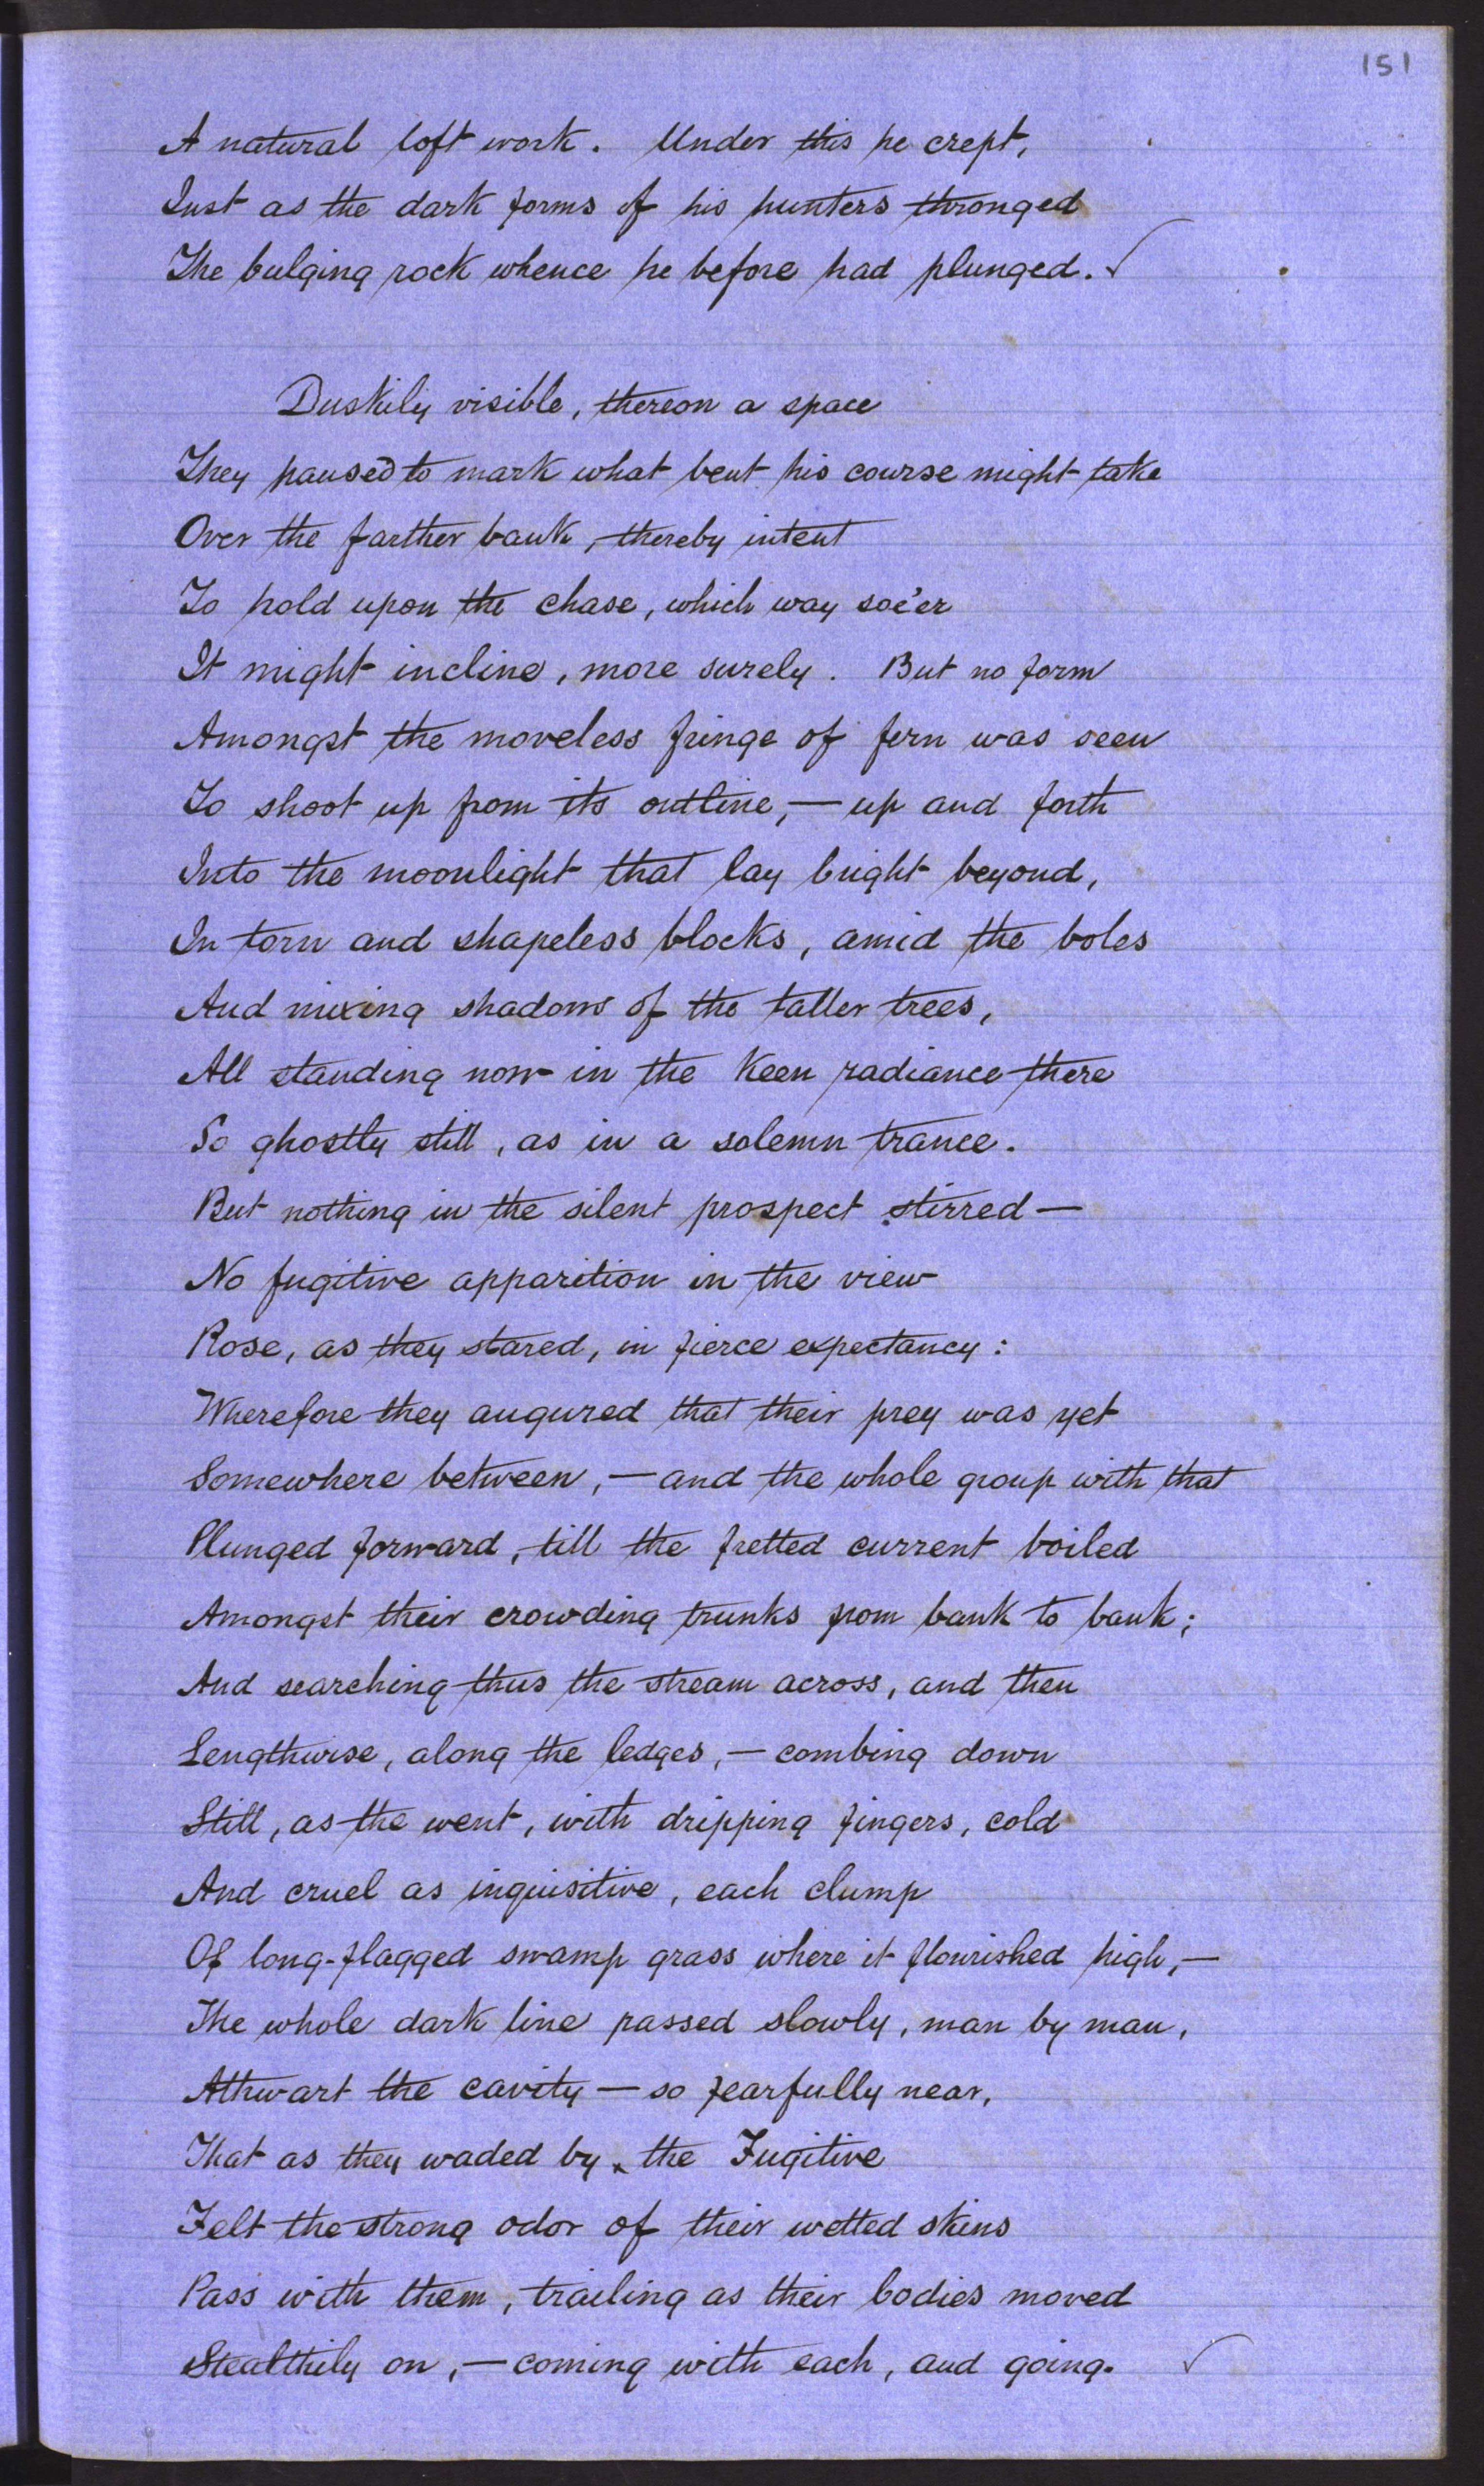 151
A natural loft work. Under this he crept,
Just as the dark forms of his hunters thronged
The bulging rock whence he before had plunged. ✓
Duskily visible, thereon a space
They paused to mark what bent his course might take
Over the farther bank, thereby intent
To hold upon the chase, which way soe'er
It might incline, more surely. But no form
Amongst the moveless fringe of fern was seen
To shoot up from its outline,— up and forth
Into the moonlight that lay bright beyond,
In torn and shapeless blocks, amid the boles
And mixing shadows of the taller trees,
All standing now in the keen radiance there
So ghostly still, as in a solemn trance.
But nothing in the silent prospect stirred—
No fugitive apparition in the view
Rose, as they stared, in fierce expectancy:
Wherefore they augured that their prey was yet
Somewhere between,— and the whole group with that
Plunged forward, till the fretted current boiled
Amongst their crowding trunks from bank to bank;
And searching thus the stream across, and then
Lengthwise, along the ledges,— combing down
Still, as the went, with dripping fingers, cold
And cruel as inquisitive, each clump
Of long-flagged swamp grass where it flourished high,—
The whole dark line passed slowly, man by man,
Athwart the cavity— so fearfully near,
That as they waded by, the Fugitive
Felt the strong odor of their wetted skins
Pass with them, trailing as their bodies moved
Stealthily on,— coming with each, and going. ✓